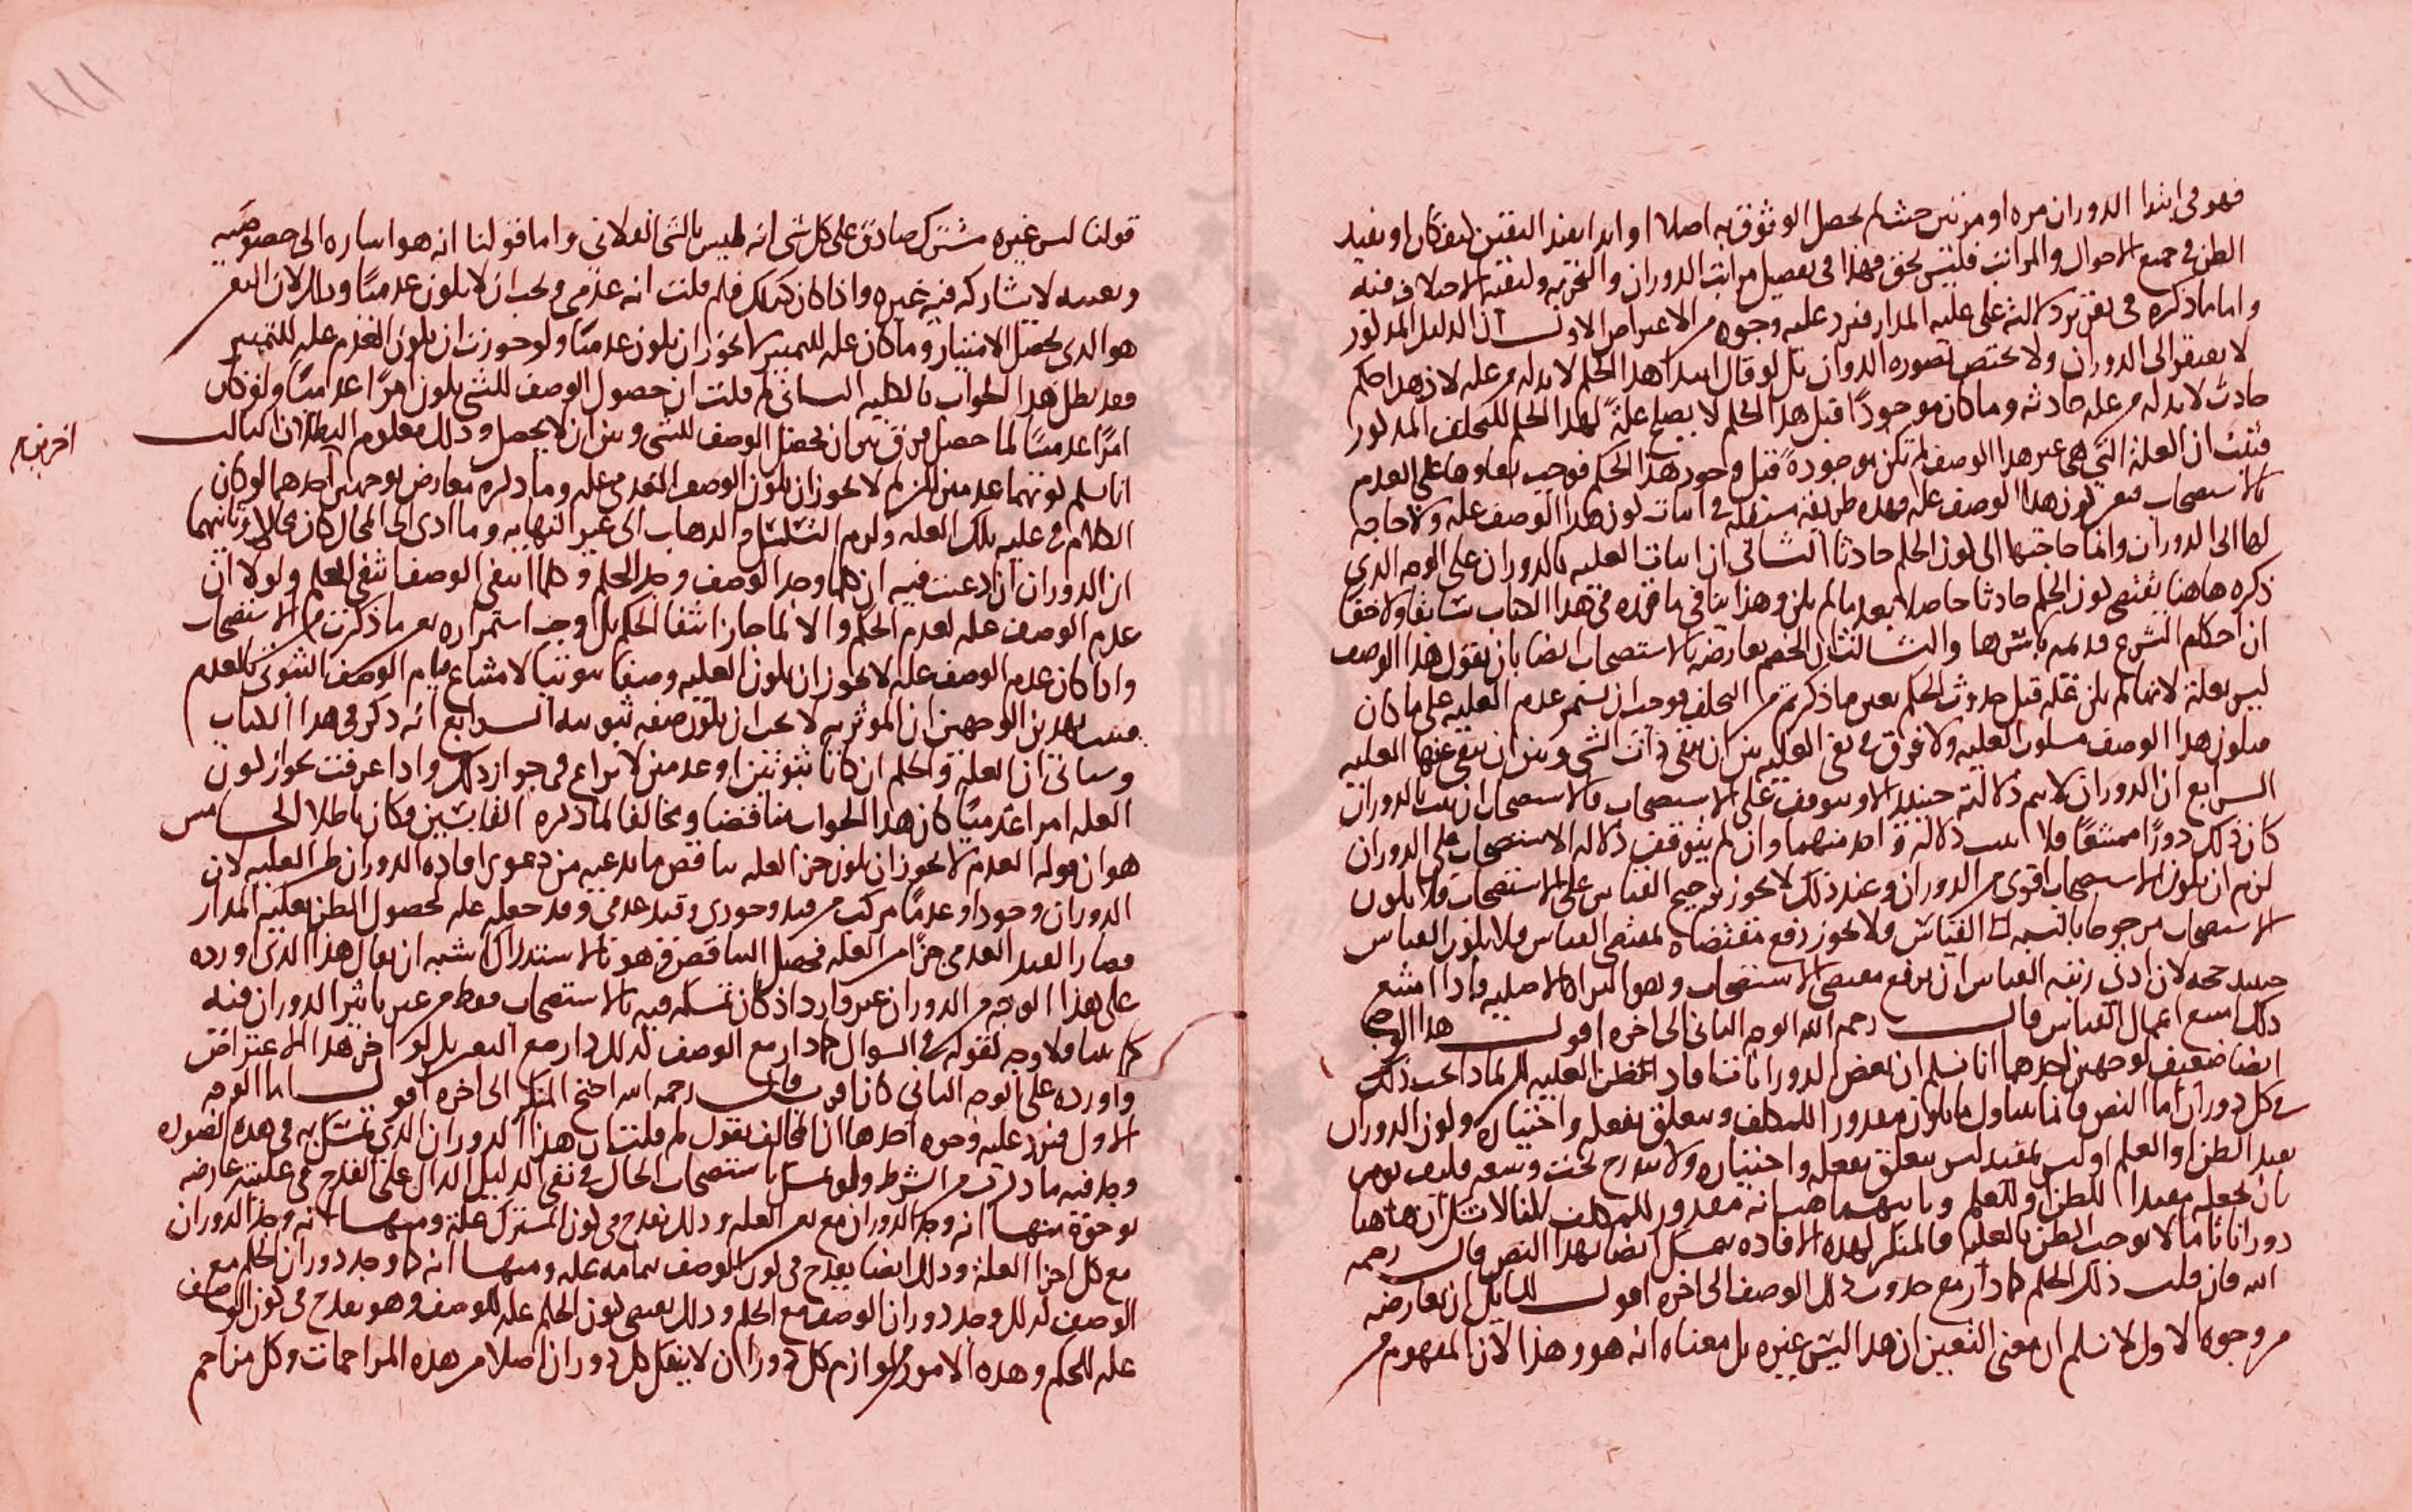 فهو في ابتدا الدوران مره او مرتين حيث لم يحصل الوثوق به اصلا او ابدا يفيد اليقين لتفكان او يفيد
الظن في جميع الاحوال والمراتب فليس بحق فهذا في تفصيل مراتب الدوران والتجربه ولنفيه الاختلاف فيه
واما ما ذكره في تقرير دلالته على عليه المدار فيرد عليه وجوه من الاعتراض الاول ان الدليل المذكور
لا يفتقر الى الدوران ولا يختص بصوره الدوران بل لو قال ابتدا هذا الحكم لا بد له من علة لان هذا حكم
حادث لا بد له من علة حادثه وما كان موجودا قبل هذا الحكم لا يصلح علةً لهذا الحكم للتخلف المذكور
فثبت ان العلة التي هي غير هذا الوصف لم تكن موجودةً قبل وجود هذا الحكم فوجب بقاوها على العدم
بالاستصحاب فتعين كون هذا الوصف علة فهذه طريقة مستقلة في اثبات كون هذا الوصف علة ولا حاجه
لها الى الدوران وانما حاجتها الى كون الحكم حادثا الثاني ان اثبات العليه بالدوران على الوجه الذي
ذكره هاهنا يقتضي كون الحكم حادثا حاصلا بعد ما لم يكن وهذا ينافي ما قرره في هذا الكتاب سابقا ولاحقا
ان احكام الشرع قديمه باسرها والثالث ان الخصم يعارضه بالاستصحاب ايضا بان يقول هذا الوصف
ليس بعلة لانه ما لم يكن علة قبل حدوث الحكم بعين ما ذكرتم من التخلف فوجب ان يستمر عدم العليه على ما كان
فيكون هذا الوصف مسلوب العليه ولا فرق في نفي العليه بين ان ينفى ذات الشي وبين ان ينفى عنها العليه
السابع ان الدوران لا تتم دلالته حينئذ الا ويتوقف على الاستصحاب فالاستصحاب ان ثبت بالدوران
كان ذلك دورًا ممتنعًا فلا تثبت دلالة واحد منهما وان لم يتوقف دلاله الاستصحاب على الدوران
لزم ان يكون الاستصحاب اقوى من الدوران وعند ذلك لا يجوز ترجيح القياس على الاستصحاب فلا يكون
الاستصحاب مرجوحا بالنسبه الى القياس ولا يجوز رفع مقتضاه بمقتضى القياس فلا يكون القياس
حينئذ حجه لان ادنى رتبه القياس ان يرفع مقتضى الاستصحاب وهو البراه الاصليه واذا امتنع
ذلك امتنع اعمال القياس قال رحمه الله الوجه الثاني الى اخره اقول هذا الوجه
ايضا ضعيف لوجهين احدهما انا نسلم ان بعض الدورانات افاد الظن العليه لكن لماذا يجب ذلك
في كل دوران اما النص فانما يتناول ما يكون مقدورا للمكلف ويتعلق بفعله واختياره وكون الدوران
يفيد الظن او العلم او ليس بمفيد ليس يتعلق بفعله واختياره ولا يندرج تحت وسعه فكيف يومر
بان يجعله مفيدا للظن او للعلم وثانيهما هب انه مقدور للمكلف لكنا لا نسلم ان هاهنا
دورانا ما لا يوجب الظن بالعليه فالمنكر لهذه الافاده يتمسك ايضا بهذا النص قال رحمه
الله فان قلت ذلك الحكم كما دار مع حدوث ذلك الوصف الى اخره اقول للسايل ان يعارضه
من وجوه الاول لا نسلم ان معنى التعين ان هذا ليس غيره بل معناه انه هو وهذا لان المفهوم من
قولنا ليس غيره مشترك صادق على كل شي انه ليس بالشي الفلاني واما قولنا انه هو اشاره الى خصوصيه
وتعينه لا يشاركه فيه غيره واذا كان كذلك فلم قلت انه عدمي ويجب ان لا يكون عدميًا وذلك لان التعين
هو الذي يحصل الامتياز وما كان علة للتمييز لا يجوز ان يكون عدميًا ولو جوزت ان يكون العدم علة للتمييز
فقد بطل هذا الجواب بالكليه الثاني لم قلت ان حصول الوصف للشي يكون امرًا عدميًا ولو كان
امرًا عدميًا لما حصل فرق بين ان يحصل الوصف للشي وبين ان لا يحصل وذلك معلوم البطلان الثالث
انا نسلم كونهما عدميين لكن لم لا يجوز ان يكون الوصف العدمي علة وما ذكره معارض بوجهين احدهما لو كان
الكلام في عليه تلك العلة ولزم التسلسل والذهاب الى غير النهايه وما ادى الى المحال كان محالا وثانيهما
ان الدوران ان ادعيت فيه ان كلما وجد الوصف وجد الحكم وكلما انتفى الوصف انتفى الحكم ولولا ان
عدم الوصف علة لعدم الحكم والا لما جاز انتفا الحكم بل اوجب استمراره بعين ما ذكرت من الاستصحاب
واذا كان عدم الوصف علة لا يجوز ان يكون العليه وصفا ثبوتيا لامتناع قيام الوصف الثبوتي بالعدم
فثبت بهذين الوجهين ان الموثريه لا يجب ان يكون صفه ثبوتيه الرابع انه ذكر في هذا الكتاب
وسياتي ان العلة والحكم ان كانا ثبوتيين او عدميين لا نزاع في جواز ذلك واذا عرفت بجواز كون
العلة امرا عدميًا كان هذا الجواب مناقضا ومخالفا لما ذكره القايسين فكان باطلا الخامس
هو ان قوله العدم لا يجوز ان يكون جز العلة يناقض ما يدعيه من دعوى افاده الدوران ظن العليه لان
الدوران وجودا وعدمًا مركب من قيد وجودي وقيد عدمي وقد جعله علة لحصول الظن بعليه المدار
فصار القيد العدمي جزًا من العلة فحصل التناقض هو بالاستدراك اشبه ان يقال هذا الذي اورده
على هذا الوجه من الدوران غير وارد اذ كان تمسكه فيه بالاستصحاب فقط من غير تاثير الدوران فيه
كما بينا فلا وجه لقوله في السوال كما دار مع الوصف كذلك دار مع التعين بل لو اخر هذا الاعتراض
واورده على الوجه الثاني كان اقرب قال رحمه الله احتج المنكر الى اخره اقول اما الوجه
الاول فيرد عليه وجوه احدها ان المخالف يقول لم قلت ان هذا الدوران الذي تتمسك به في هذه الصوره
وجد فيه ما ذكرت من الشرط ولو تمسك باستصحاب الحال في نفي الدليل الدال على القدح في عليته عارضه
بوجوه منها انه وجد الدوران مع نفس العلة وذلك يقدح في كون المشترك علة ومنها انه وجد الدوران
مع كل اجزا العلة وذلك ايضا يقدح في كون الوصف بتمامه علة ومنها انه كما وجد دوران الحكم مع
الوصف كذلك وجد دوران الوصف مع الحكم وذلك يقتضي كون الحكم علة للوصف وهو يقدح في كون الوصف
علة للحكم وهذه الامور من لوازم كل دوران لا ينفك كل دوران اصلا من هذه المزاحمات وكل مزاحم